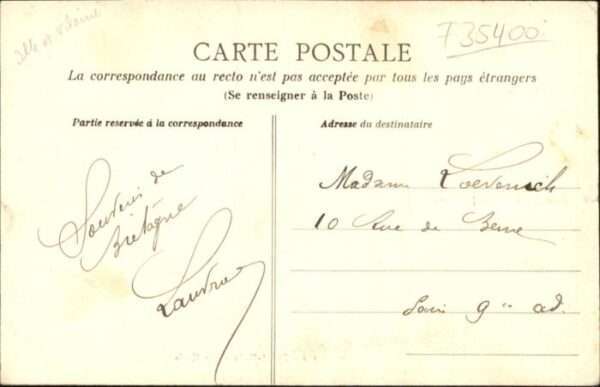 Ille et Vilaine
735400
CARTE POSTALE
La correspondance au recto n'est pas acceptée par tous les pays étrangers
(Se renseigner à la Poste)
Partie reservée à la correspondance
Adresse du destinataire
Souvenir de
Bretagne
Madame
10 Rue de Berne